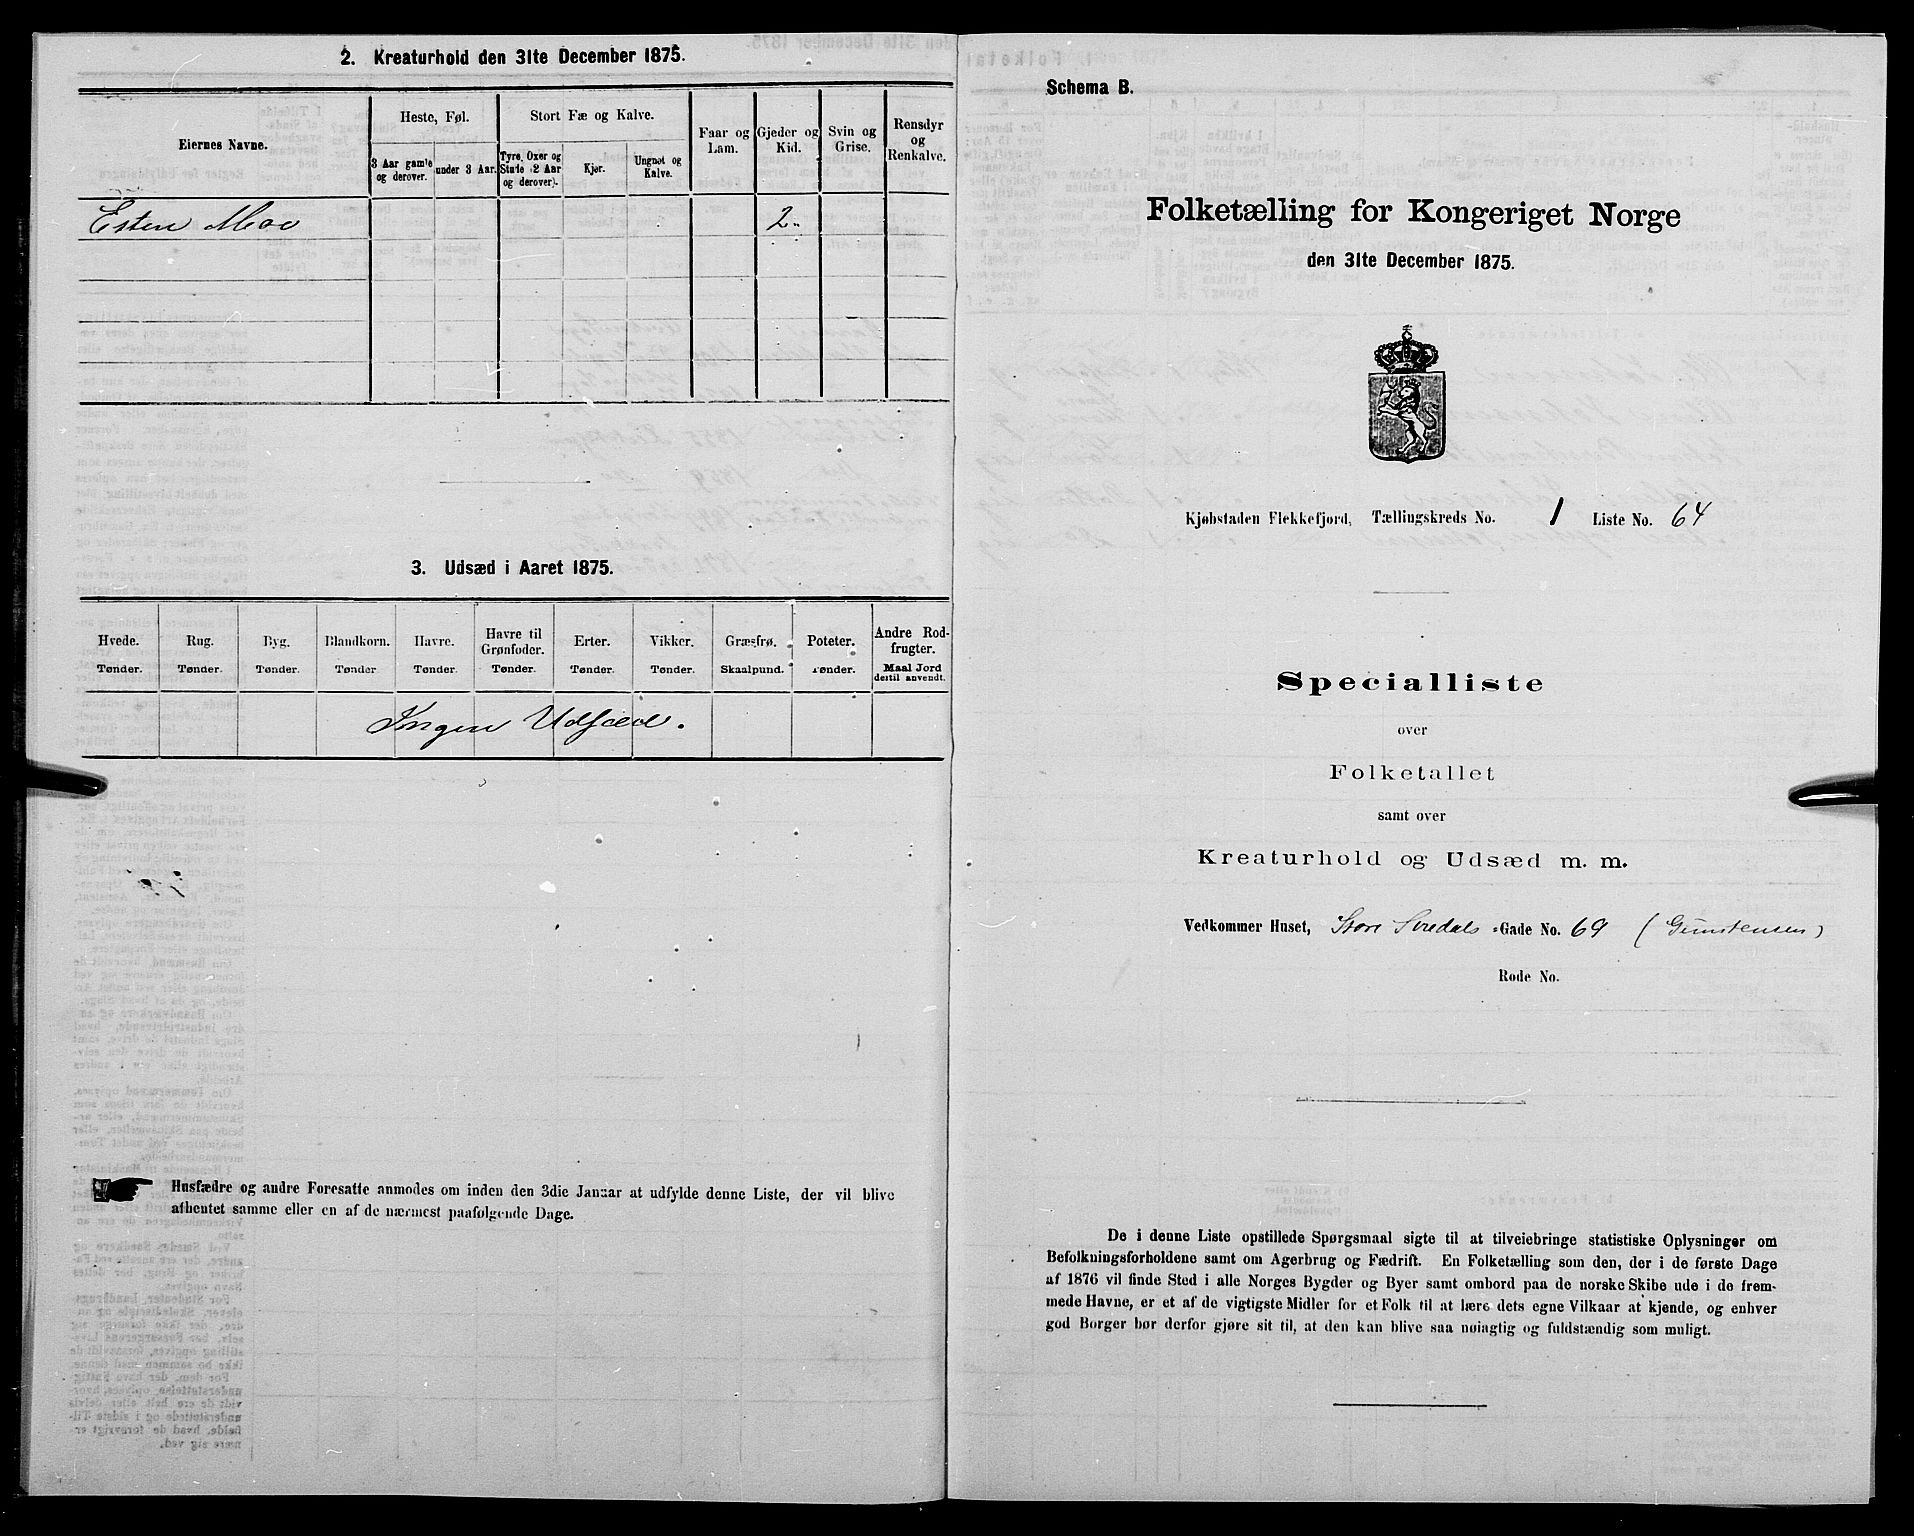 2. Kreaturhold den 31te December 1875.
Eiernes Navne.
Heste, Føl.
Stort Fæ og Kalve.
Faar og Lam.
Gjeder og Kid.
Svin og Grise.
Rensdyr og Renkalve.
3 Aar gamle og derover.
under 3 Aar.
Tyre, Oxer og Stude (2 Aar og derover).
Kjør.
Ungnøt og Kalve.
Esten Moe 2
3. Udsæd i Aaret 1875.
Hvede. Rug. Byg. Blandkorn. Havre. Havre til Grønfoder. Erter. Vikker. Græsfrø. Poteter. Andre Rodfrugter.
Tønder. Tønder. Tønder. Tønder. Tønder. Tønder. Tønder. Tønder. Skaalpund. Tønder. Maal Jord dertil anvendt.
Ingen Udsæd.
Husfædre og andre Foresatte anmodes om inden den 3die Januar at udfylde denne Liste, der vil blive
afhentet samme eller en af de nærmest paafølgende Dage.
Schema B.
Folketælling for Kongeriget Norge
den 31te December 1875.
Kjøbstaden Flekkefjord, Tællingskreds No. 1 Liste No. 64
Specialliste
over
Folketallet
samt over
Kreaturhold og Udsæd m. m.
Vedkommer Huset, Store Svedals Gade No. 69 (Gunstensen)
Rode No.
De i denne Liste opstillede Spørgsmaal sigte til at tilveiebringe statistiske Oplysninger om
Befolkningsforholdene samt om Agerbrug og Fædrift. En Folketælling som den, der i de første Dage
af 1876 vil finde Sted i alle Norges Bygder og Byer samt ombord paa de norske Skibe ude i de frem-
mede Havne, er et af de vigtigste Midler for et Folk til at lære dets egne Vilkaar at kjende, og enhver
god Borger bør derfor gjøre sit til, at den kan blive saa nøiagtig og fuldstændig som muligt.